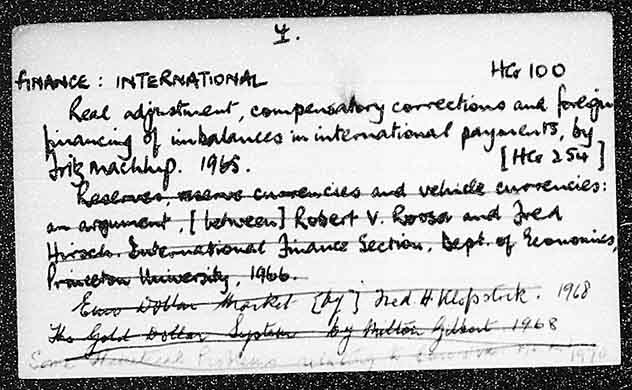 4.
FINANCE: INTERNATIONAL HG 100
Real adjustment, compensatory corrections and foreign
financing of imbalances in international payments, by
Fritz Machlup. 1965. [HG 254]
Reserves, reserve currencies and vehicle currencies:
an argument, [between] Robert V. Roosa and Fred
Hirsch. International Finance Section, Dept. of Economics,
Princeton University, 1966.
Euro Dollar Market [by] Fred. H. Klopstock. 1968
The Gold Dollar System by Milton Gilbert 1968
Some Problems relating to 1970